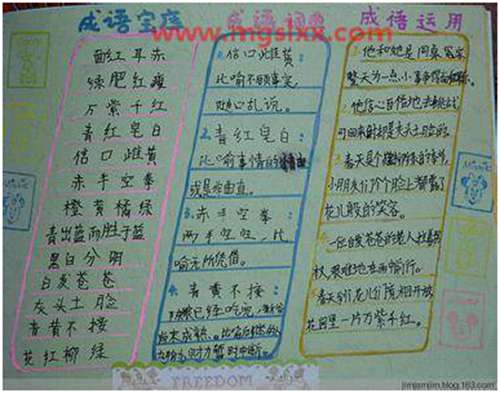 成语宝库
面红耳赤
绿肥红瘦
万紫千红
青红皂白
信口雌黄
赤手空拳
橙黄橘绿
青出蓝而胜于蓝
黑白分明
白发苍苍
灰头土脸
青黄不接
花红柳绿
成语词典
1.信口雌黄:
比喻不顾事实,
随口乱说。
2.青红皂白:
比喻事情的
或是非曲直。
3.赤手空拳:
两手空空,比
喻无所凭借。
4.青黄不接:
陈粮已经吃完,
后来
成语运用
1.他和她是同桌
整天为一点小事争得
2.他信心百倍地去
可回来时却是灰头土脸的。
3.春天是个
小朋友们个个脸上
花儿般的笑容。
4.一位白发苍苍的老人拄着拐
杖,艰难地在雨中前行。
5.春天到了,花儿们竞相开放
花园里一片万紫千红。
FREEDOM
www.mgslxx.com
jimismjiim.blog.163.com